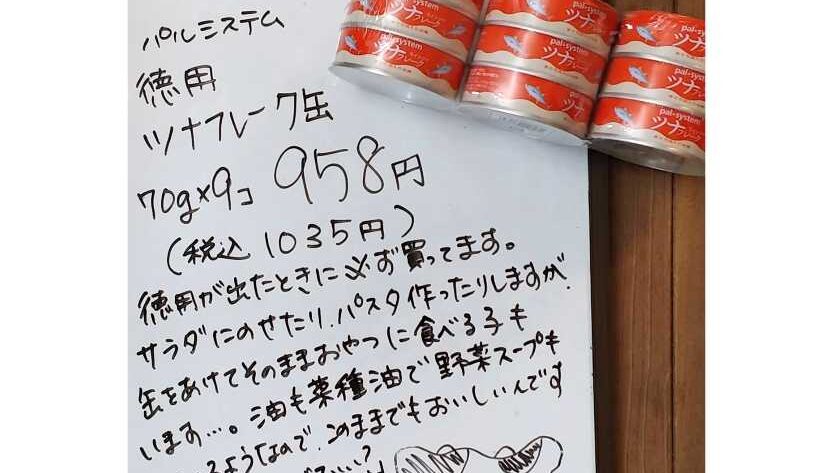 パルシステム
徳用
ツナフレーク缶
70g×9コ 958円
(税込 1035円)
徳用が出たときに必ず買ってます。
サラダにのせたり、パスタ作ったりしますが、
缶をあけてそのままおやつに食べる子も
います…。油も菜種油で野菜スープも
ようなので、このままでもおいしいんです
pal-system
ツナフレーク
pal-system
ツナフレーク
pal-system
ツナフレーク
pal-system
ツナフレーク
pal-system
ツナフレーク
pal-system
ツナフレーク